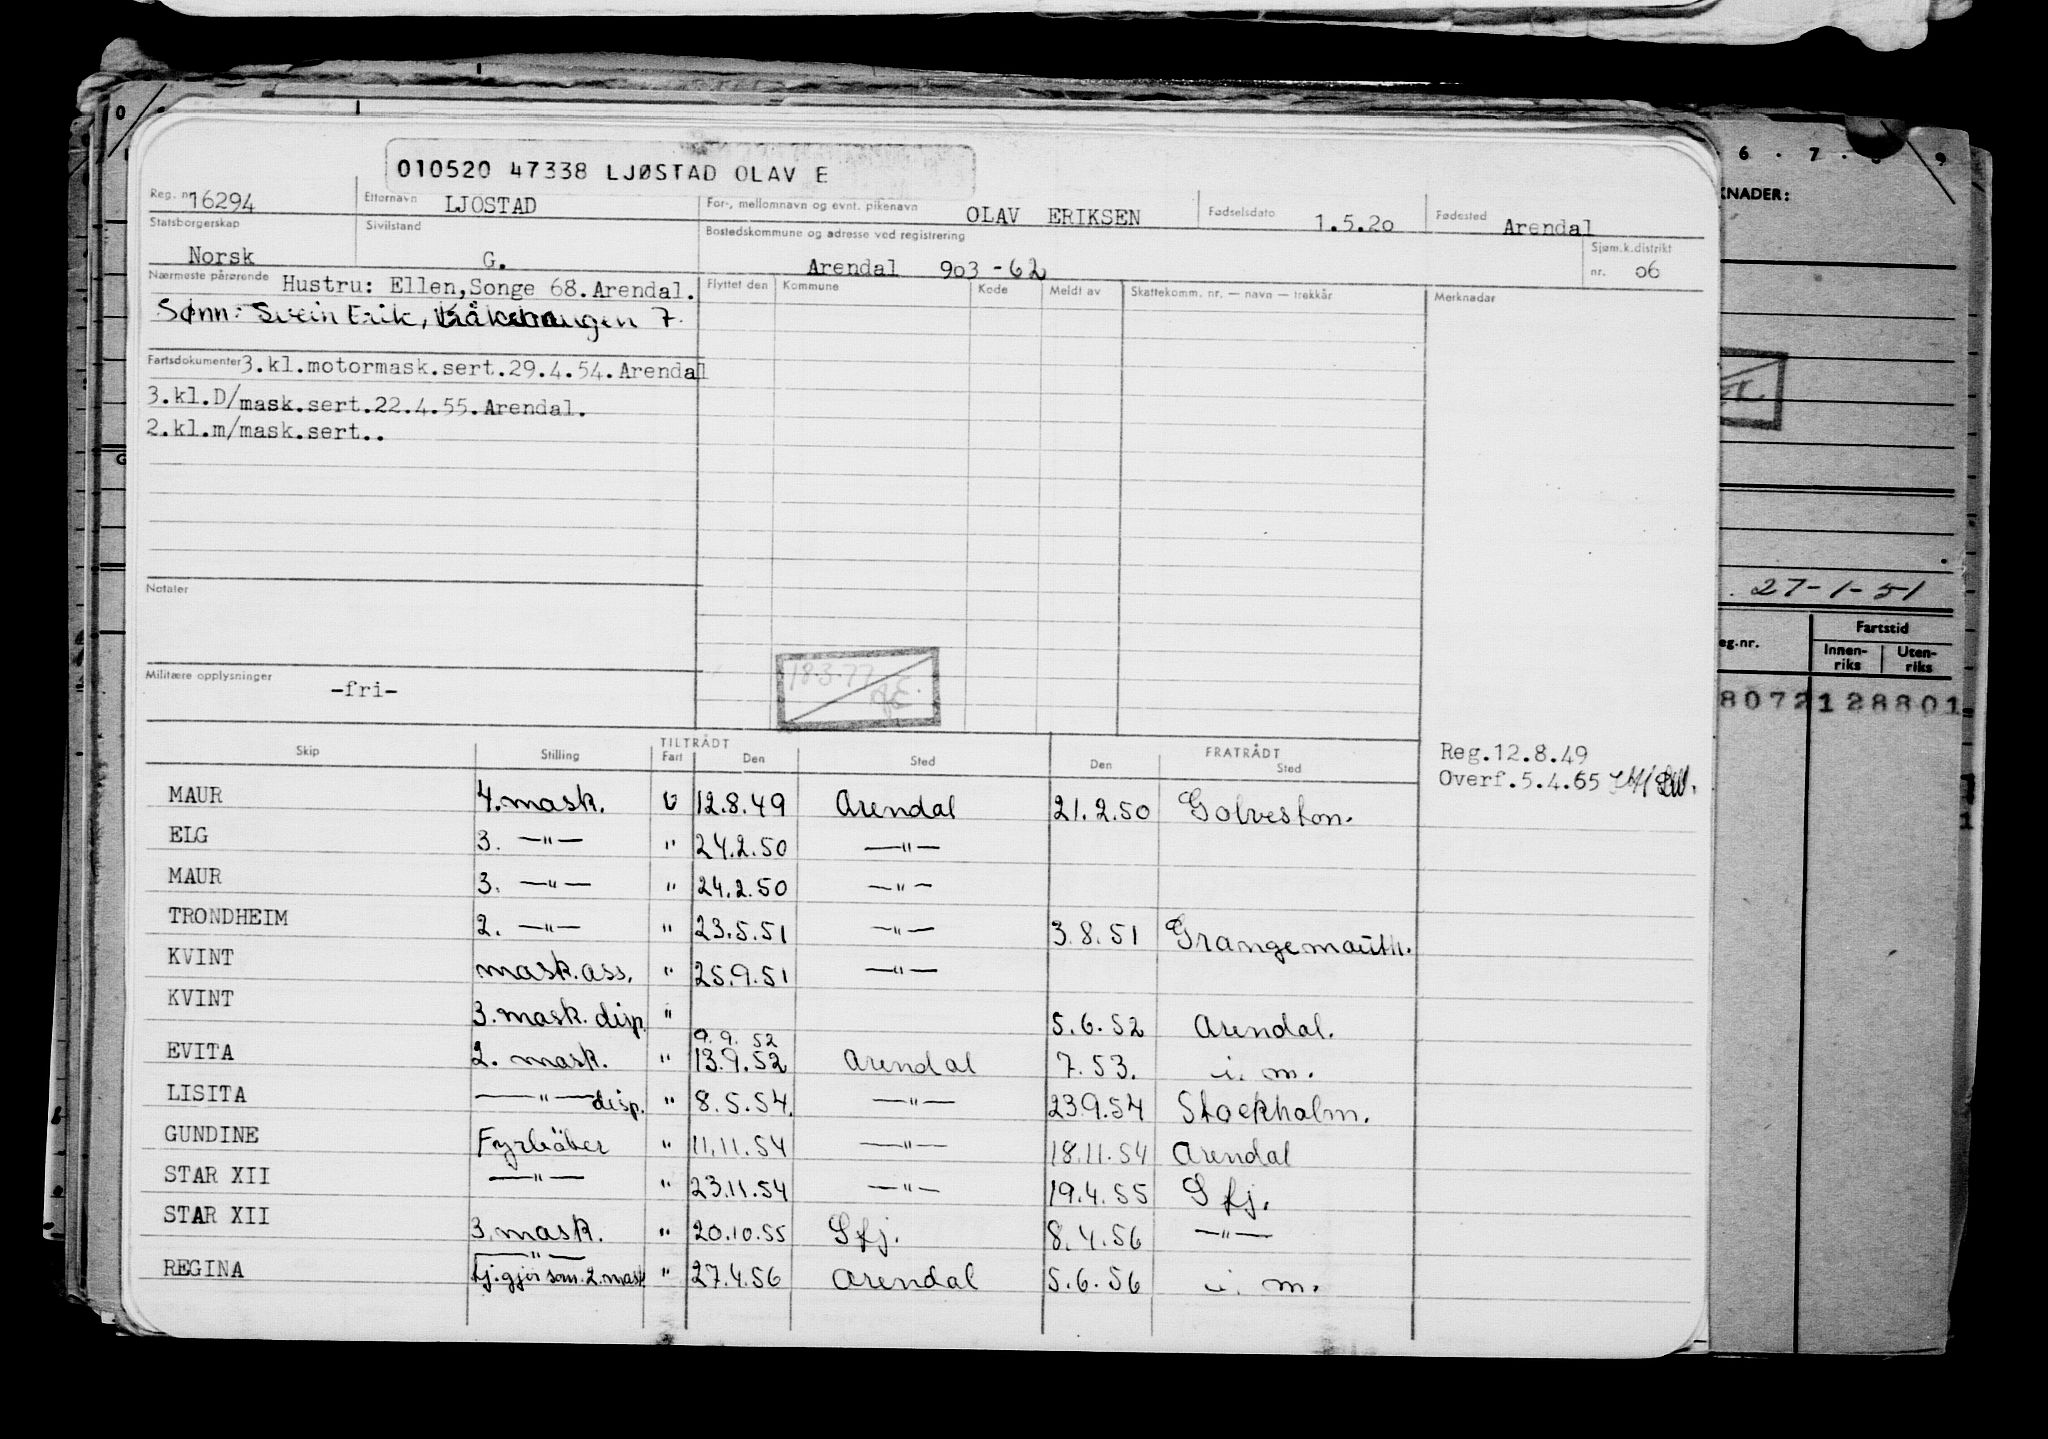 010520 47338 LJØSTAD OLAV E
Reg. nr. 16294 Etternavn LJOSTAD For-, mellomnavn og evnt. pikenavn OLAV ERIKSEN Fødselsdato 1.5.20 Fødested Arendal
Statsborgerskap Norsk Sivilstand G. Bostedskommune og adresse ved registrering Arendal 903-62 Sjøm.k.distrikt nr. 06
Nærmeste pårørende Hustru: Ellen,Songe 68.Arendal.
Sønn: Svein Erik, 7.
Flyttet den Kommune Kode Meldt av Skattekomm. nr. — navn — trekkår Merknader
Fartsdokumenter 3.kl.motormask.sert.29.4.54.Arendal
3.kl.D/mask.sert.22.4.55.Arendal.
2.kl.m/mask.sert..
Notater
18.3.77
Militære opplysninger -fri-
Reg.12.8.49
Overf.5.4.65
TILTRÅDT FRATRÅDT
Skip Stilling Fart Den Sted Den Sted
MAUR 4. mask. U 12.8.49 Arendal 21.2.50 Golveston.
ELG 3. —"— " 24.2.50 —"—
MAUR 3. —"— " 24.2.50 —"—
TRONDHEIM 2. —"— " 23.5.51 —"— 3.8.51 Grangemouth.
KVINT mask.ass. " 25.9.51 —"—
KVINT 3. mask. disp. " 5.6.52 Arendal.
9.9.52
EVITA 2. mask. " 13.9.52 Arendal 7.53. i. m.
LISITA —"— disp. " 8.5.54. —"— 23.9.54 Stockholm.
GUNDINE Fyrbøter " 11.11.54 —"— 18.11.54 Arendal
STAR XII —"— " 23.11.54 —"— 19.4.55 Sfj.
STAR XII 3. mask. " 20.10.55 Sfj. 8.4.56 —"—
—"—
REGINA tj.gjør som 2. mask " 27.4.56 Arendal 5.6.56 i. m.
6 . 7 . 8 9
KNADER:
27-1-51
eg.nr. Fartstid
Innen-riks Uten-riks
8072128801